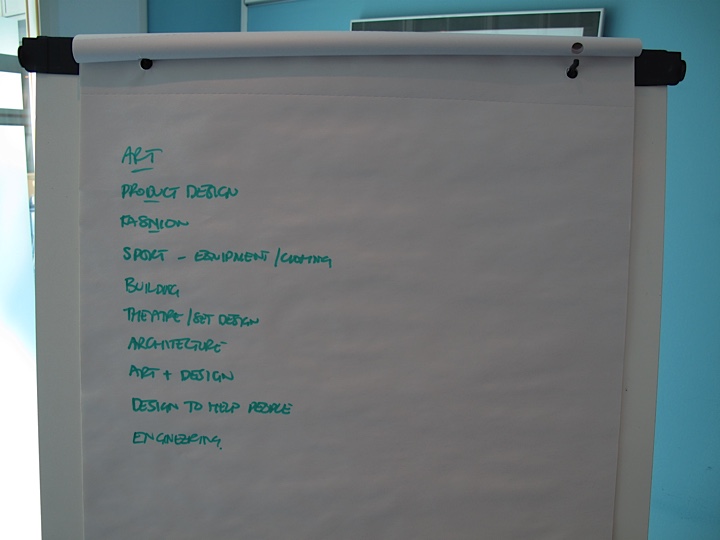 ART
PRODUCT DESIGN
FASHION
SPORT - EQUIPMENT/CLOTHING
BUILDING
THEATRE/SET DESIGN
ARCHITECTURE
ART + DESIGN
DESIGN TO HELP PEOPLE
ENGINEERING.